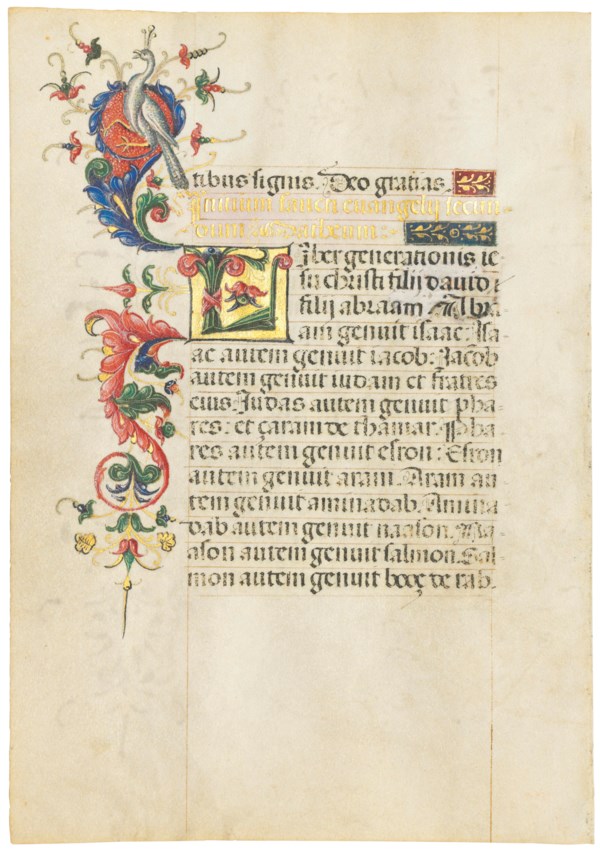 tibus signis. Deo gratias.
Initium sancti euangelij secun-
dum Matheum:
Liber generationis ie-
su christi filij dauid
filij abraam. Abra-
am genuit isaac. Isa-
ac autem genuit iacob. Jacob
autem genuit iudam et fratres
eius. Judas autem genuit pha-
res: et çaram de thamar. Pha-
res autem genuit esron: Esron
autem genuit aram. Aram au-
tem genuit aminadab. Amina-
dab autem genuit naason. Na-
ason autem genuit salmon. Sal-
mon autem genuit booç de rab-